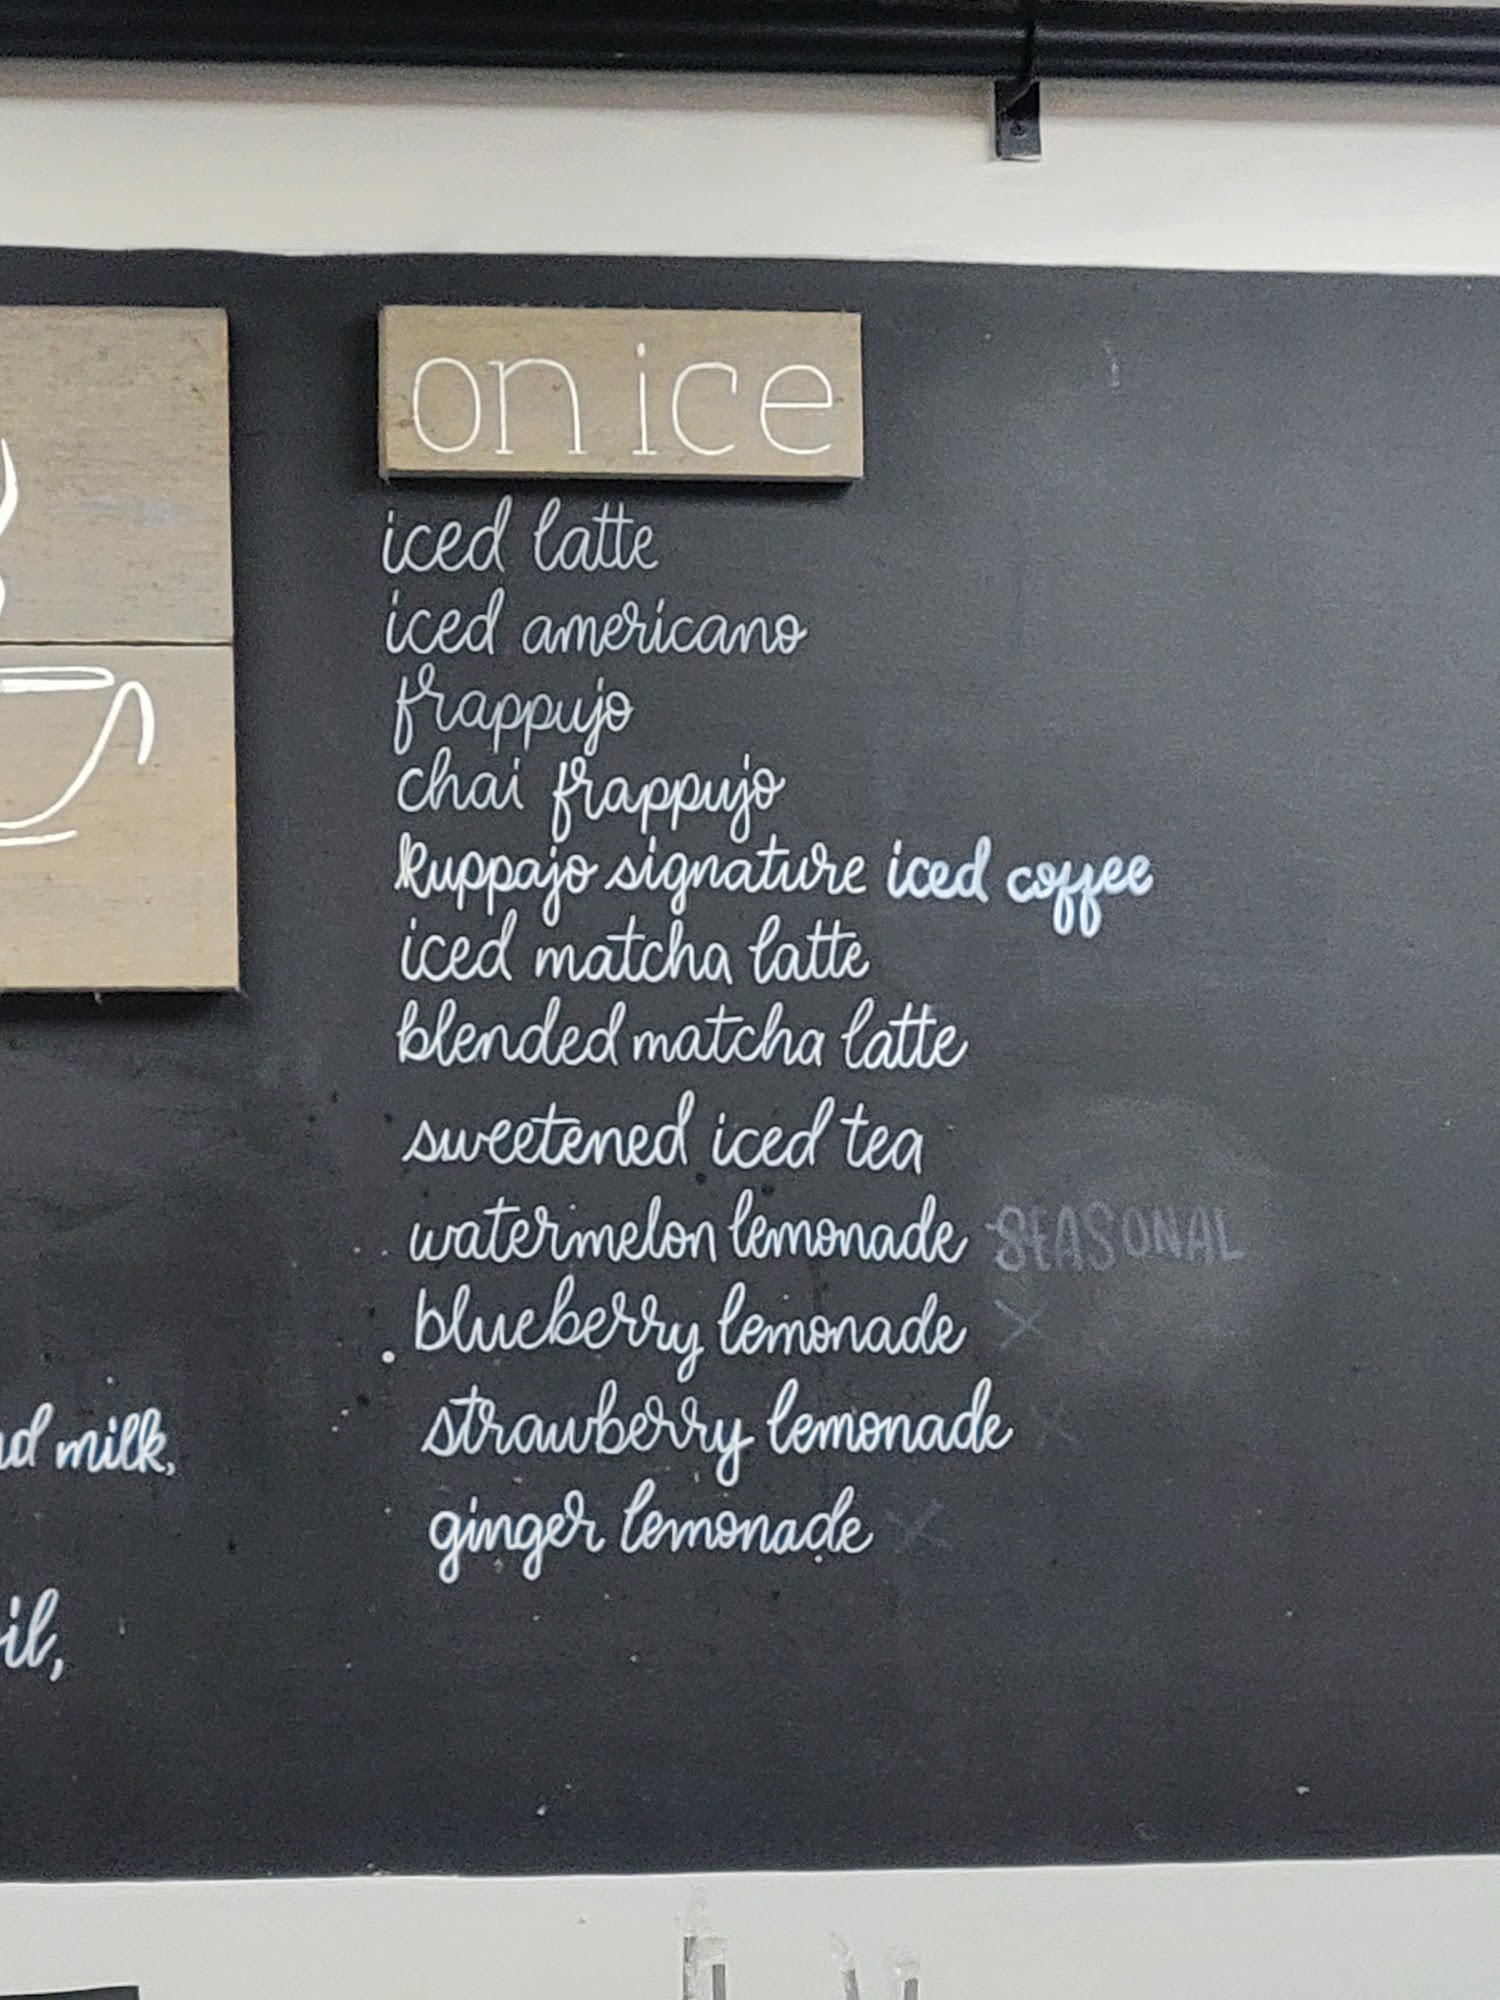 on ice
iced latte
iced americano
frappujo
chai frappujo
kuppajo signature iced coffee
iced matcha latte
blended matcha latte
sweetened iced tea
watermelon lemonade SEASONAL
blueberry lemonade X
strawberry lemonade X
ginger lemonade X
milk,